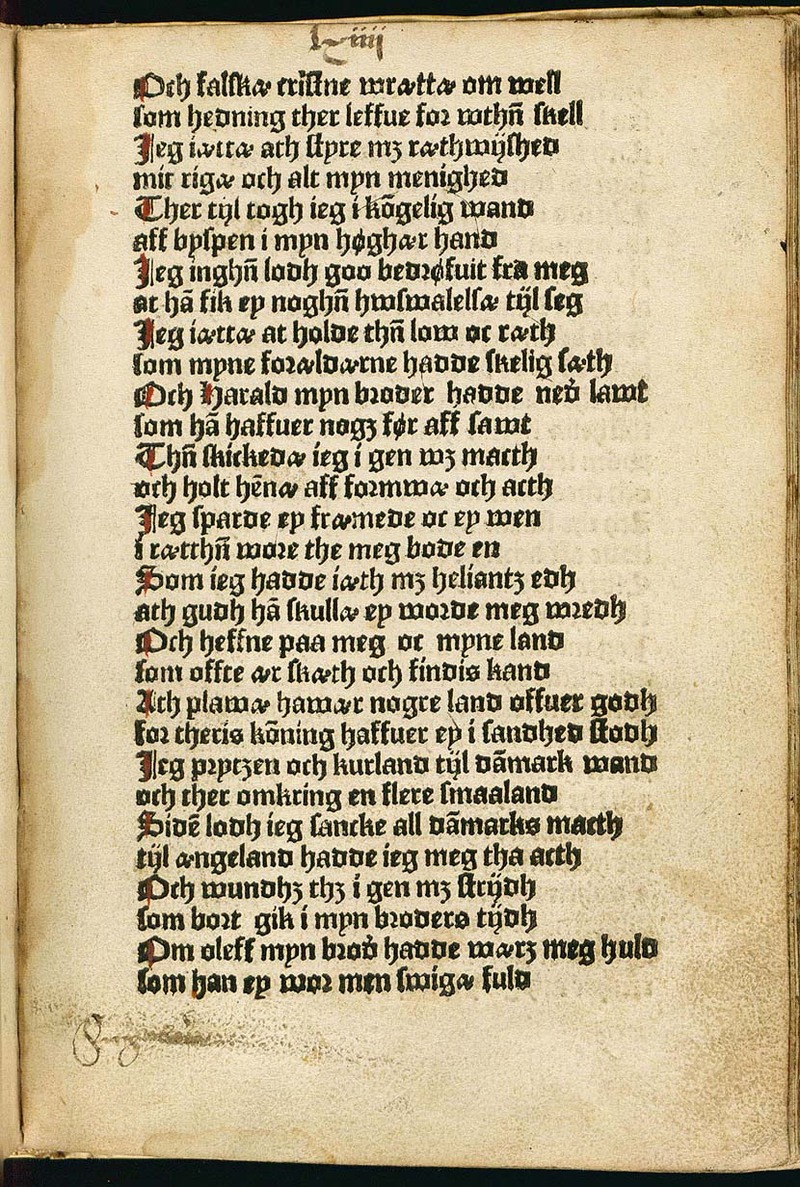 lxiiij
Och falskæ cristne wrættæ om well
som hedning ther leffue for wthn̄ skell
Jeg iættæ ath styre mꝫ ræthwijshed
mit rigæ och alt myn menighed
Ther tijl togh ieg i kōgelig wand
aff byspen i myn høghær hand
Jeg inghn̄ lodh goo bedrøfuit fra meg
at hā fik ey noghn̄ hwswalelsæ tijl seg
Jeg iættæ at holde thn̄ low oc ræth
som myne forældærne hadde skelig sæth
Och Harald myn broder hadde ned lawt
som hā haffuer nogꝫ før aff sawt
Thn̄ skickedæ ieg i gen wꝫ macth
och holt hēnæ aff formwæ och acth
Jeg sparde ey fræmede oc ey wen
i rætthn̄ wore the meg bode en
Som ieg hadde iæth mꝫ heliantꝫ edh
ath gudh hā skullæ ey worde meg wredh
Och heffne paa meg oc myne land
som offte ær skæth och findis kand
Ath plawæ hawær nogre land offuer godh
for theris kōning haffuer ey i sandhed stodh
Jeg prytzen och kurland tijl dāmark wand
och ther omkring en flere smaaland
Sidē lodh ieg sancke all dāmarks macth
tijl ængeland hadde ieg meg tha acth
Och wundhꝫ thꝫ i gen mꝫ strijdh
som bort gik i myn broders tijdh
Om oleff myn brod̄ hadde wærꝫ meg huld
som han ey wor men swigæ fuld